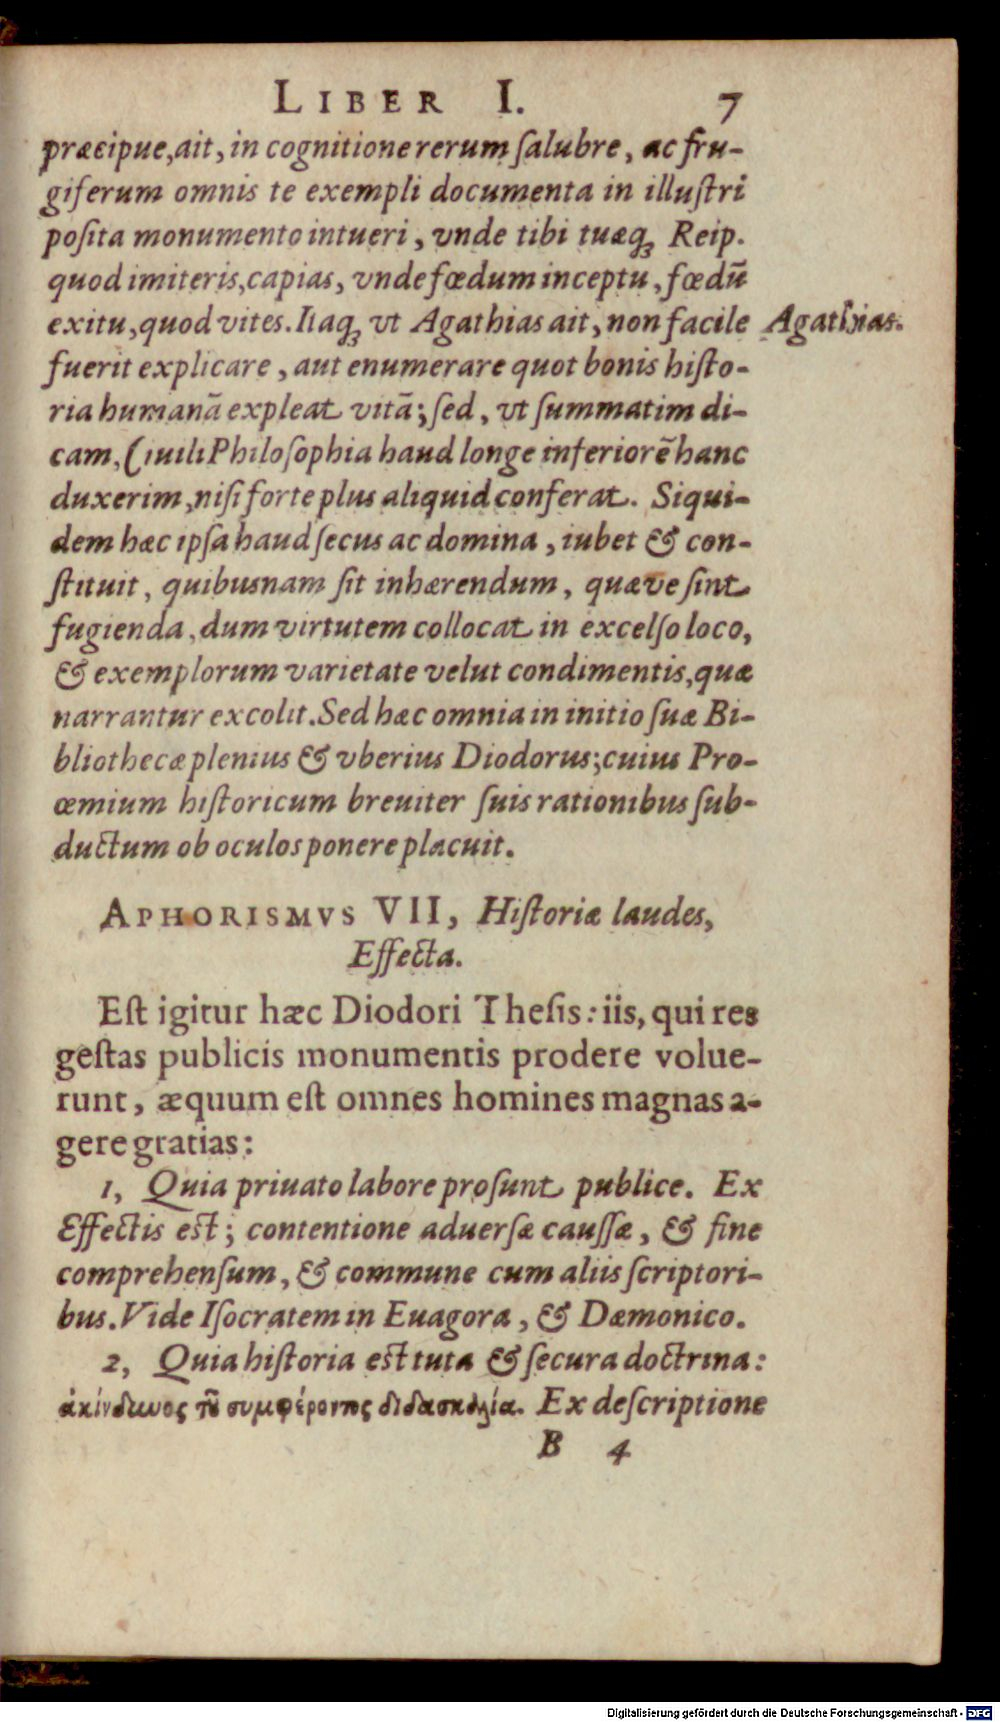 LIBER I. 7
præcipue, ait, in cognitione rerum ſalubre, ac fru-
giferum omnis te exempli documenta in illuſtri
poſita monumento intueri, vnde tibi tuæq́ꝫ Reip.
quod imiteris, capias, vnde fœdum inceptu, fœdū
exitu, quod vites. Itaqꝫ vt Agathias ait, non facile
Agathias.
fuerit explicare, aut enumerare quot bonis hiſto-
ria humanā expleat vitā; ſed, vt ſummatim di-
cam, Ciuili Philoſophia haud longe inferiorē hanc
duxerim, niſi forte plus aliquid conferat. Siqui-
dem hæc ipſa haud ſecus ac domina, iubet & con-
ſtituit, quibusnam ſit inhærendum, quæve ſint
fugienda, dum virtutem collocat in excelſo loco,
& exemplorum varietate velut condimentis, quæ
narrantur excolit. Sed hæc omnia in initio ſuæ Bi-
bliothecæ plenius & vberius Diodorus; cuius Pro-
œmium hiſtoricum breuiter ſuis rationibus ſub-
ductum ob oculos ponere placuit.
APHORISMVS VII, Hiſtoriæ laudes,
Effecta.
Eſt igitur hæc Diodori Theſis: iis, qui res
geſtas publicis monumentis prodere volue-
runt, æquum eſt omnes homines magnas a-
gere gratias:
1, Quia priuato labore proſunt publice. Ex
Effectis est; contentione aduerſæ cauſſæ, & fine
comprehenſum, & commune cum aliis ſcriptori-
bus. Vide Iſocratem in Euagora, & Dæmonico.
2, Quia hiſtoria est tuta & ſecura doctrina:
ἀκίνδυνος τοῦ συμφέροντος διδασκαλία. Ex deſcriptione
B 4
Digitalisierung gefördert durch die Deutsche Forschungsgemeinschaft - DFG